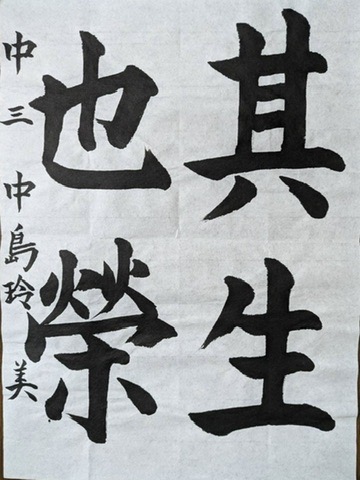 其生
也榮
中三 中島玲美